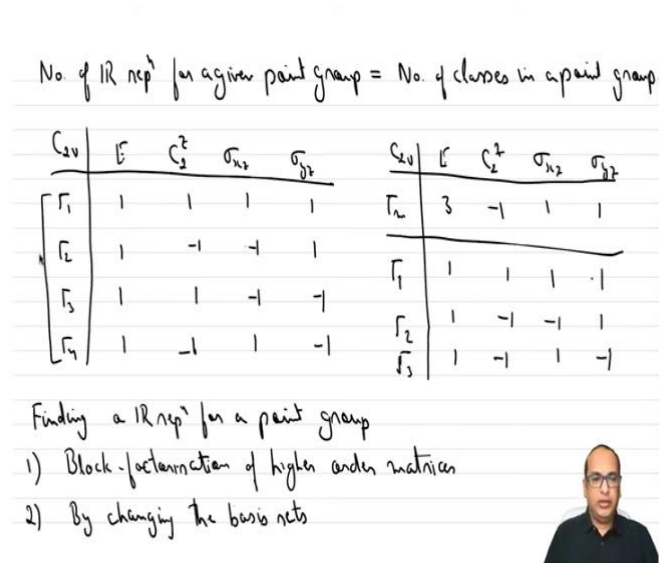 No. of IR repⁿ for a given point group = No. of classes in a point group
C₂ᵥ E C₂ᶻ σxz σyz
Γ₁ 1 1 1 1
Γ₂ 1 -1 -1 1
Γ₃ 1 1 -1 -1
Γ₄ 1 -1 1 -1
C₂ᵥ E C₂ᶻ σxz σyz
Γₘ 3 -1 1 1
Γ₁ 1 1 1 1
Γ₂ 1 -1 -1 1
Γ₃ 1 -1 1 -1
Finding a IR repⁿ for a point group
1) Block-factorisation of higher order matrices
2) By changing the basis sets